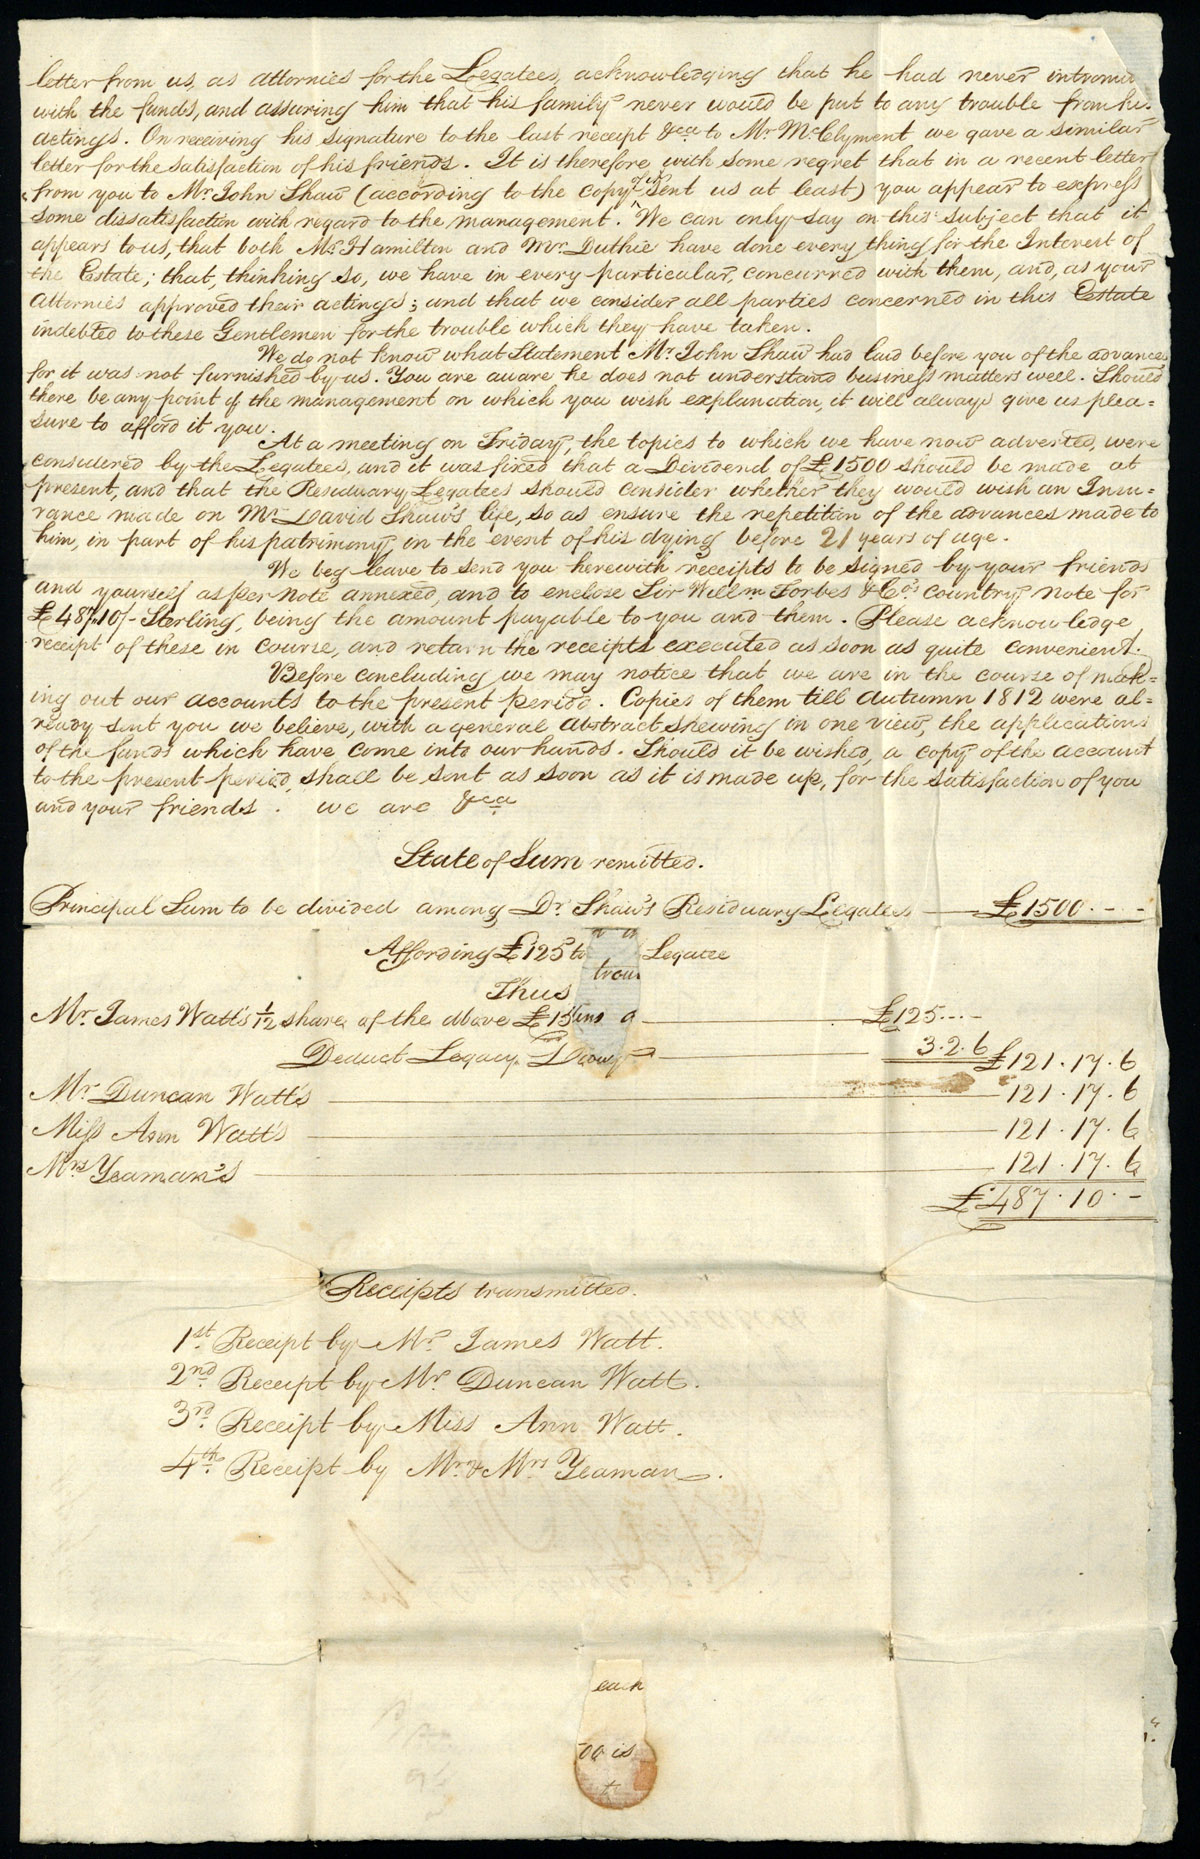 letter from us, as attornies for the Legatees, acknowledging that he had never intromi
with the funds, and assuring him that his family never would be put to any trouble from his
actings. On receiving his signature to the last receipt &ca to Mr. McClyment we gave a similar
letter for the satisfaction of his friends. It is therefore with some regret that in a recent letter
from you to Mr. John Shaw (according to the copy of it sent us at least) you appear to express
some dissatisfaction with regard to the management. We can only say on this subject that it
appears to us, that both Mr. Hamilton and Mr. Duthie have done every thing for the Interest of
the Estate; that, thinking so, we have in every particular, concurred with them, and, as your
attornies approved their actings; and that we consider all parties concerned in this Estate
indebted to these Gentlemen for the trouble which they have taken.
We do not know what Statement Mr. John Shaw had laid before you of the advances
for it was not furnished by us. You are aware he does not understand business matters well. Should
there be any point of the management on which you wish explanation, it will always give us plea=
sure to afford it you.
At a meeting on Friday, the topics to which we have now adverted, were
considered by the Legatees, and it was fixed that a Dividend of £1500 should be made at
present, and that the Residuary Legatees should consider whether they would wish an Insu=
rance made on Mr. David Shaw's life, so as ensure the repetition of the advances made to
him, in part of his patrimony, in the event of his dying before 21 years of age.
We beg leave to send you herewith receipts to be signed by your friends
and yourself as per note annexed, and to enclose Sir Willm Forbes & Co's country note for
£487.10/- Sterling, being the amount payable to you and them. Please acknowledge
receipt of these in course, and return the receipts executed as soon as quite convenient.
Before concluding we may notice that we are in the course of mak=
ing out our accounts to the present period. Copies of them till autumn 1812 were al=
ready sent you we believe, with a general abstract shewing in one view, the applications
of the funds which have come into our hands. Should it be wished, a copy of the account
to the present period, shall be sent as soon as it is made up, for the satisfaction of you
and your friends. we are &ca
State of Sum remitted.
Principal Sum to be divided among Dr. Shaw's Residuary Legatees £1500.--
Affording £125 to Legatee
trou
Thus
Mr. James Watt's 1/12 share of the above £15 £125.--
Deduct Legacy 3.2.6 £121.17.6
Mr. Duncan Watt's 121.17.6
Miss Ann Watt's 121.17.6
Mrs Yeaman's 121.17.6
£487.10.-
Receipts transmitted.
1st. Receipt by Mr. James Watt.
2nd. Receipt by Mr. Duncan Watt.
3rd. Receipt by Miss Ann Watt.
4th. Receipt by Mr. & Mrs Yeaman.
each
00 is